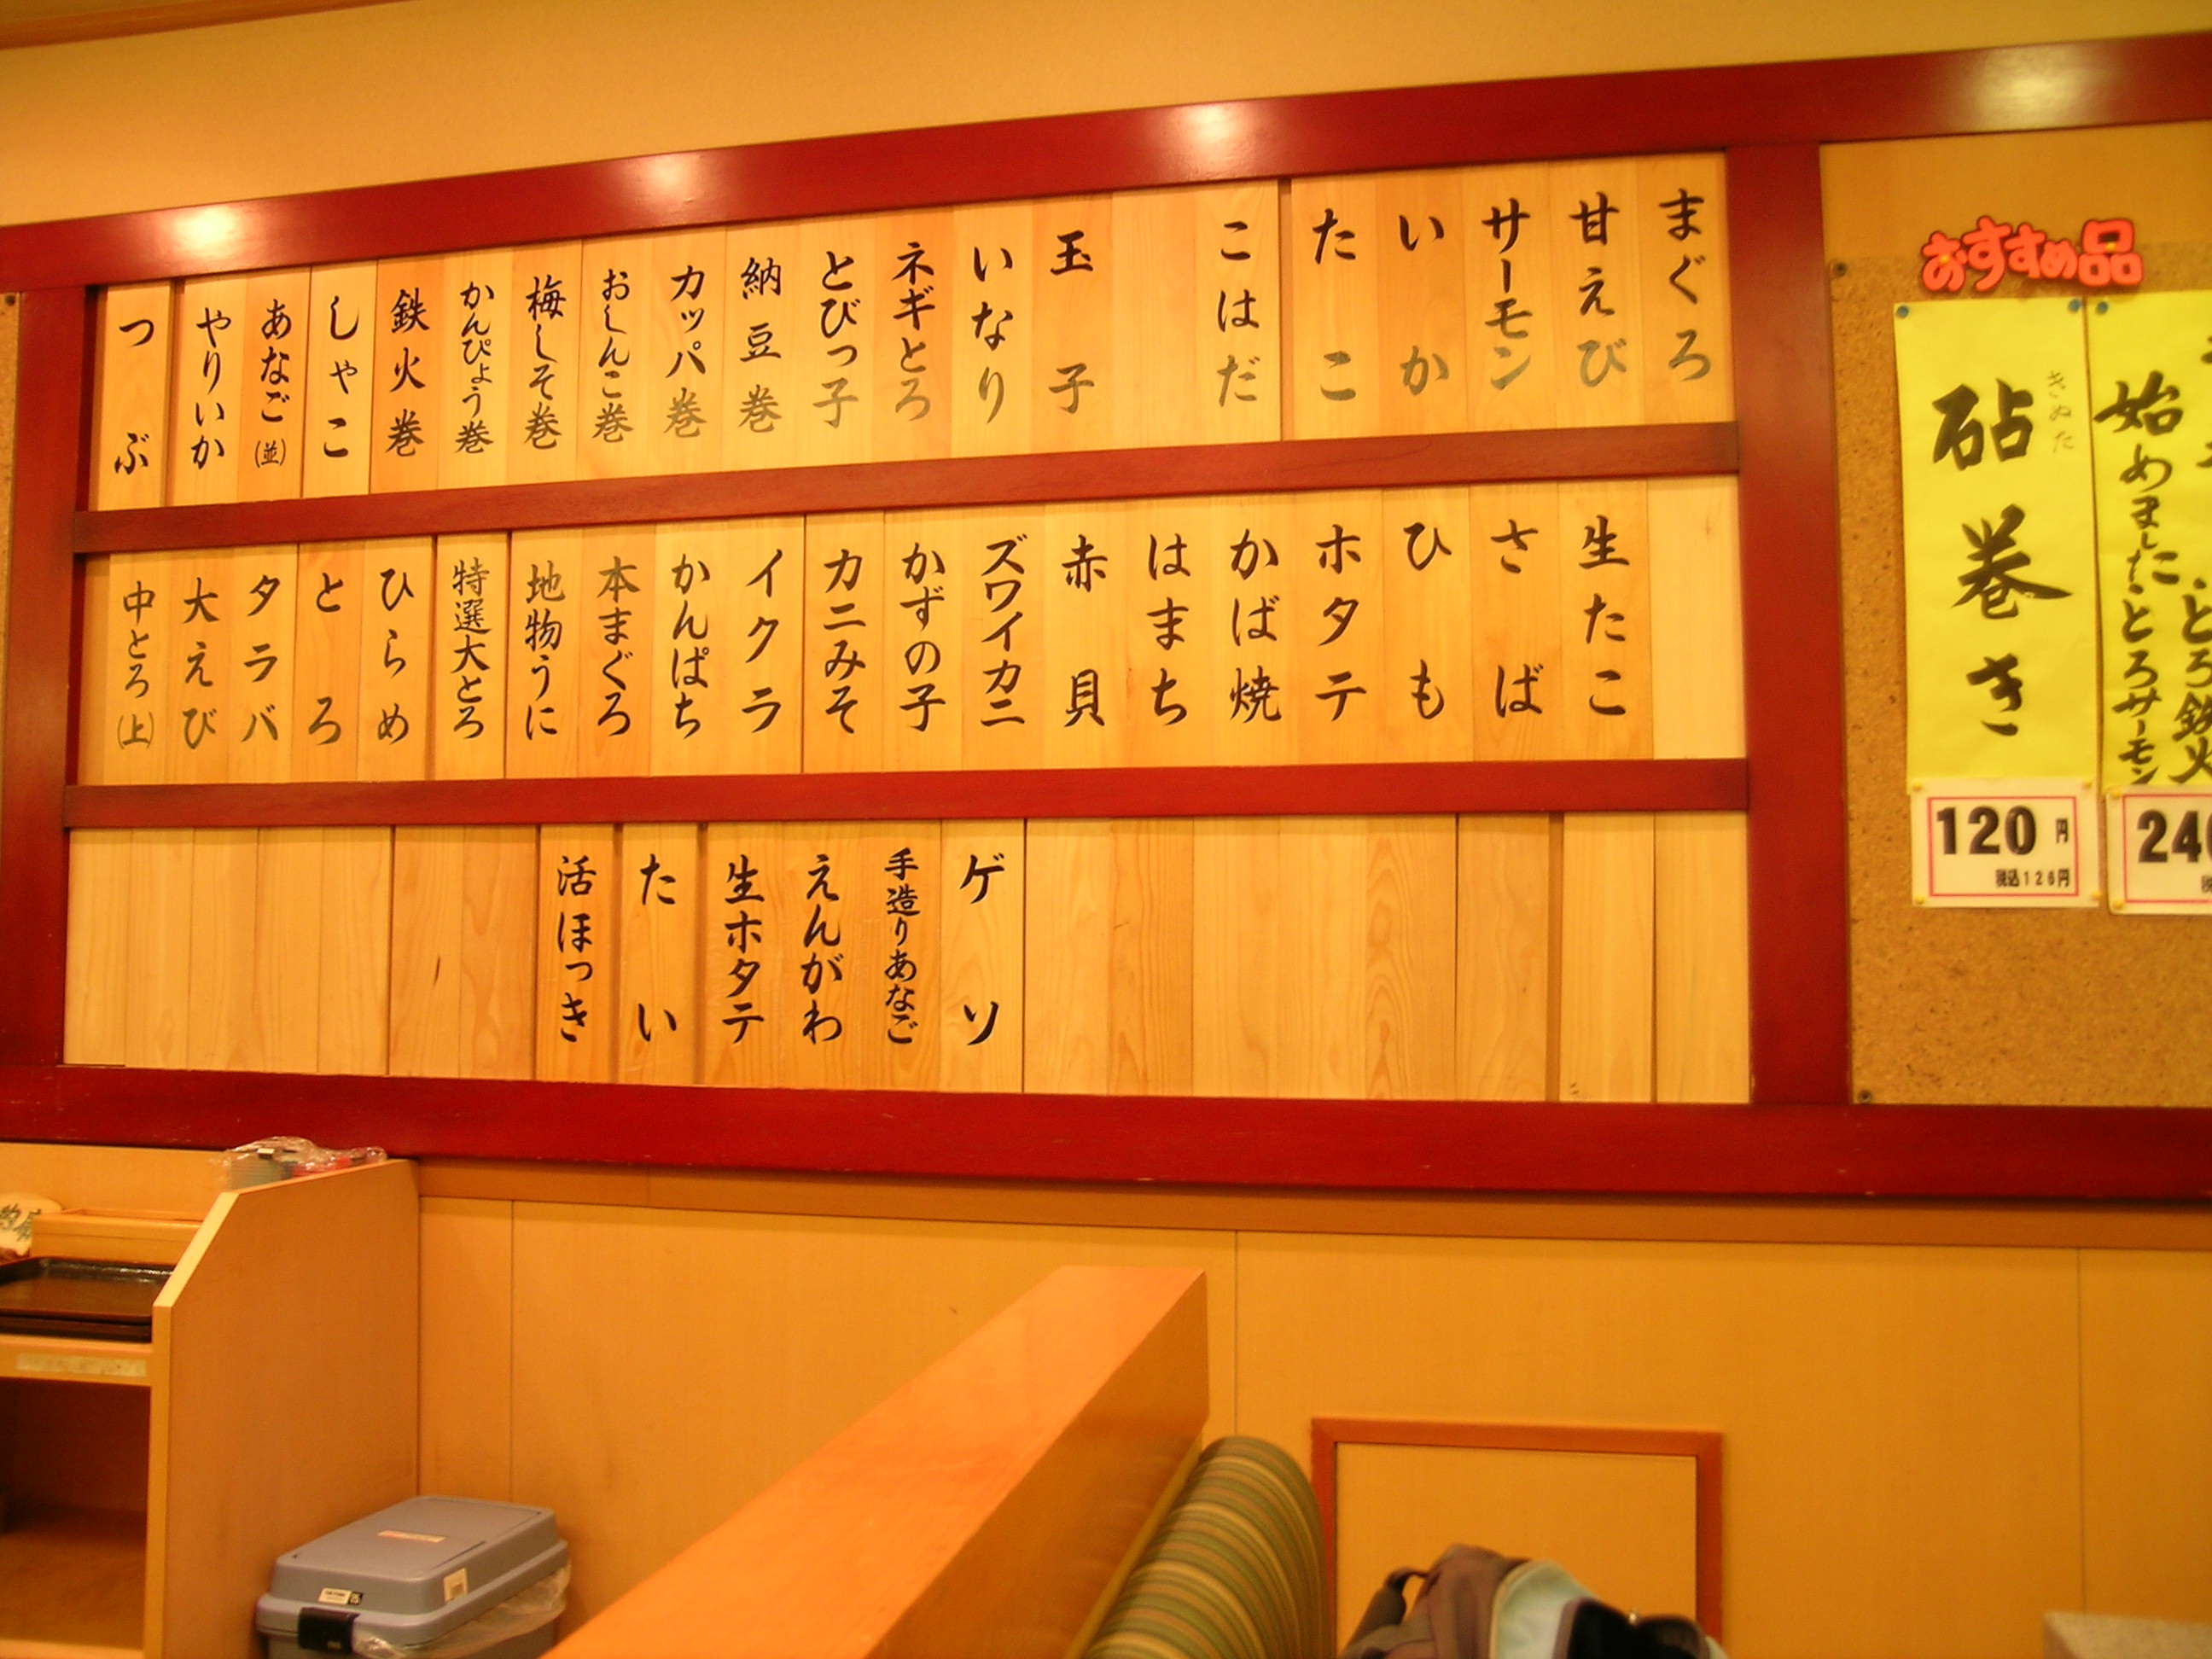 まぐろ
甘えび
サーモン
いか
たこ
こはだ
玉子
いなり
ネギとろ
とびっ子
納豆巻
カッパ巻
おしんこ巻
梅しそ巻
かんぴょう巻
鉄火巻
しゃこ
あなご(並)
やりいか
つぶ
生たこ
さば
ひも
ホタテ
かば焼
はまち
赤貝
ズワイカニ
かずの子
カニみそ
イクラ
かんぱち
本まぐろ
地物うに
特選大とろ
ひらめ
とろ
タラバ
大えび
中とろ(上)
ゲソ
手造りあなご
えんがわ
生ホタテ
たい
活ほっき
おすすめ品
とろ鉄火
始めました とろサーモン
240
砧巻き
きぬた
120円
税込126円